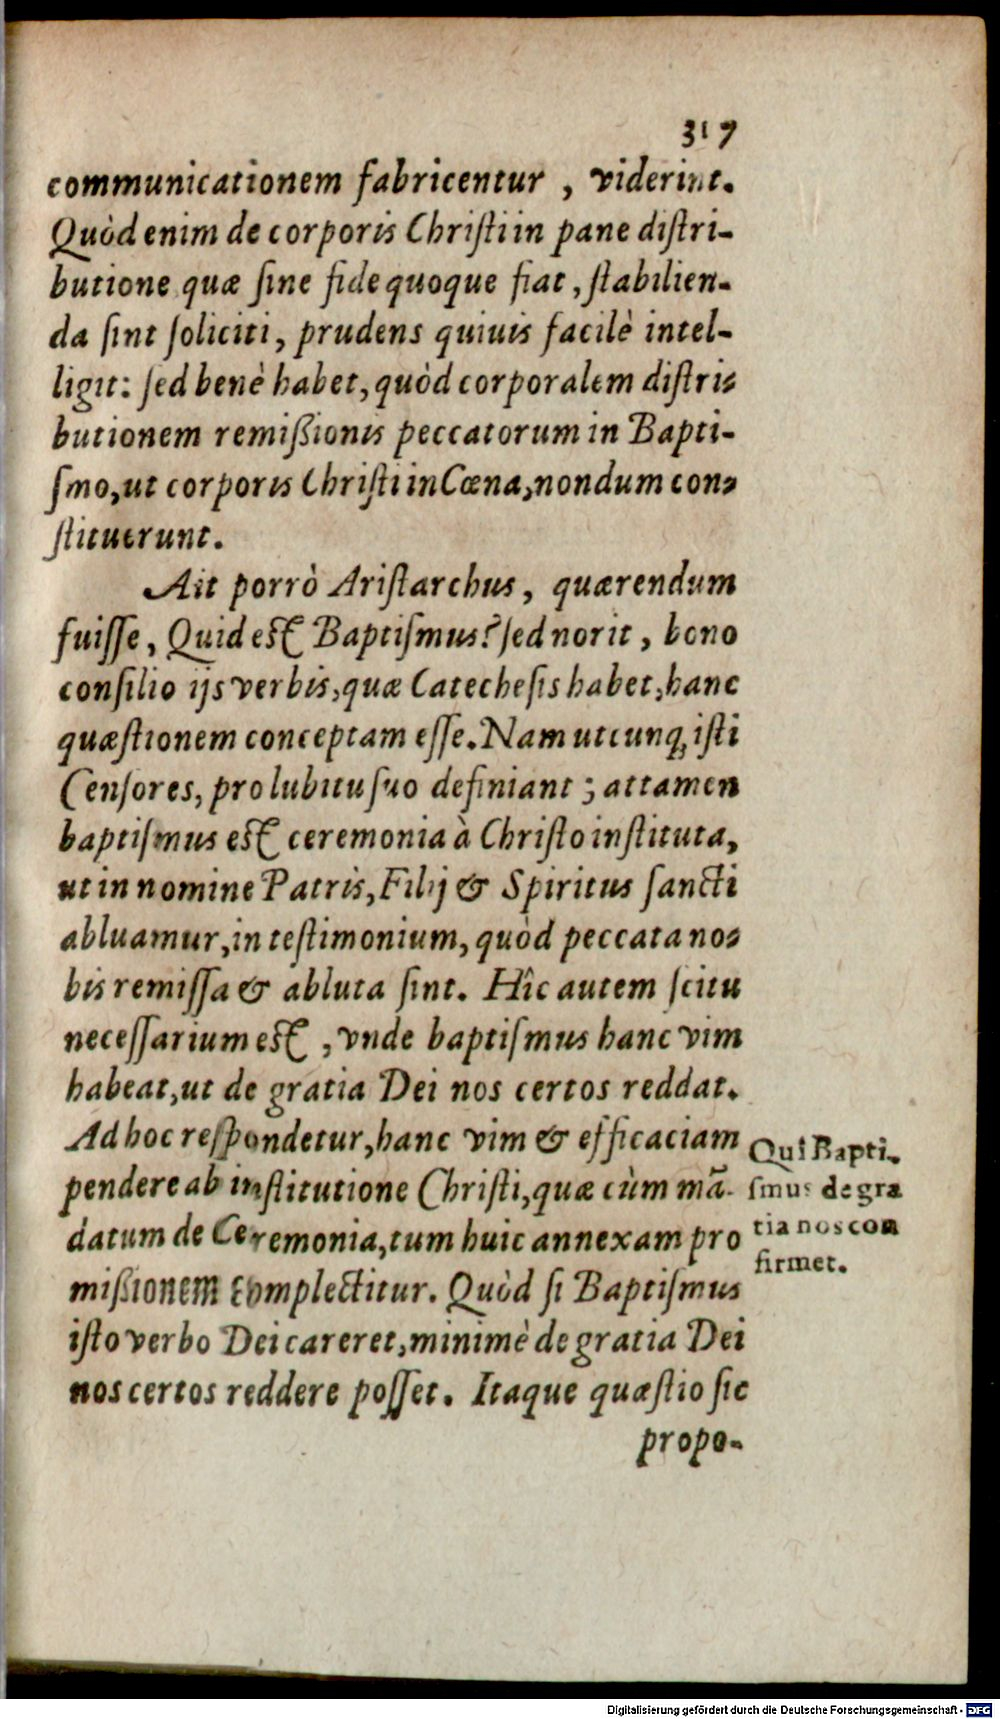 317
communicationem fabricentur , viderint.
Quòd enim de corporis Christi in pane distri-
butione quæ sine fide quoque fiat , stabilien-
da sint soliciti, prudens quiuis facilè intel-
ligit: sed benè habet, quòd corporalem distri-
butionem remißionis peccatorum in Bapti-
smo, ut corporis Christi in Cœna, nondum con-
stituerunt.
Ait porrò Aristarchus, quærendum
fuisse, Quid est Baptismus? sed norit, bono
consilio ijs verbis, quæ Catechesis habet, hanc
quæstionem conceptam esse. Nam utcunq; isti
Censores, pro lubitu suo definiant ; attamen
baptismus est ceremonia à Christo instituta,
ut in nomine Patris, Filij & Spiritus sancti
abluamur, in testimonium, quòd peccata no-
bis remissa & abluta sint. Hîc autem scitu
necessarium est , vnde baptismus hanc vim
habeat, ut de gratia Dei nos certos reddat.
Ad hoc respondetur, hanc vim & efficaciam
pendere ab institutione Christi, quæ cùm mã-
datum de Ceremonia, tum huic annexam pro
mißionem complectitur. Quòd si Baptismus
isto verbo Dei careret, minimè de gratia Dei
nos certos reddere posset. Itaque quæstio sic
propo-
Quî Bapti-
smus de gra
tia nos con
firmet.
Digitalisierung gefördert durch die Deutsche Forschungsgemeinschaft - DFG